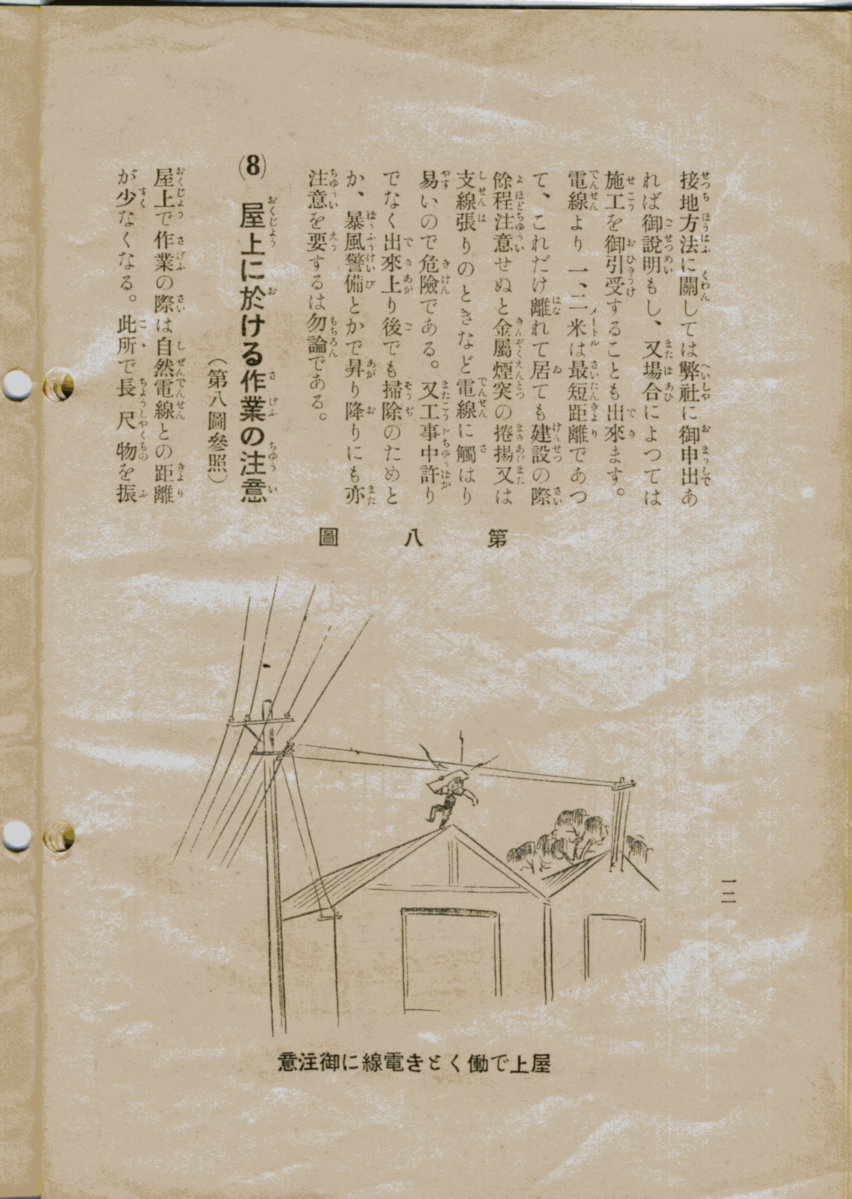 接地方法に關しては弊社に御申出あ
れば御說明もし、又場合によつては
施工を御引受することも出來ます。
電線より一、二米は最短距離であつ
て、これだけ離れて居ても建設の際
餘程注意せぬと金屬煙突の捲揚又は
支線張りのときなど電線に觸はり
易いので危險である。又工事中許り
でなく出來上り後でも掃除のためと
か、暴風警備とかで昇り降りにも亦
注意を要するは勿論である。
(8) 屋上に於ける作業の注意
(第八圖參照)
屋上で作業の際は自然電線との距離
が少なくなる。此所で長尺物を振
第八圖
屋上で働くとき電線に御注意
一二